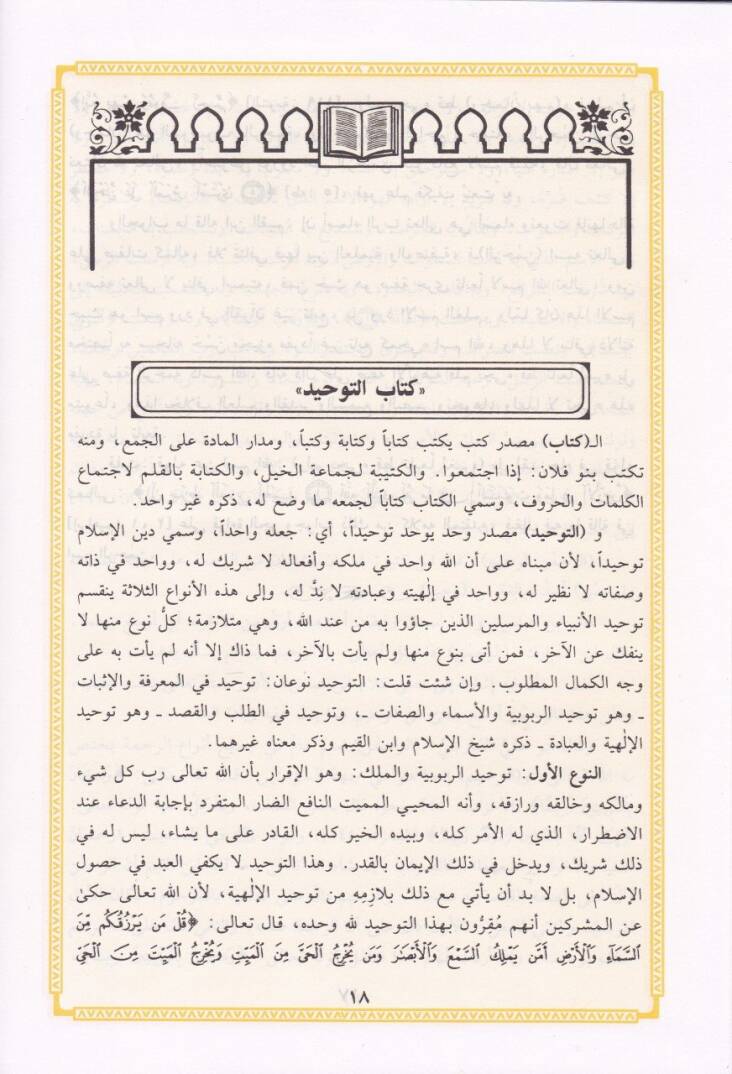 «كتاب التوحيد»
الـ(كتاب) مصدر كتب يكتب كتاباً وكتابة وكتباً، ومدار المادة على الجمع، ومنه
تكتب بنو فلان: إذا اجتمعوا. والكتيبة لجماعة الخيل، والكتابة بالقلم لاجتماع
الكلمات والحروف، وسمي الكتاب كتاباً لجمعه ما وضع له، ذكره غير واحد.
و (التوحيد) مصدر وحد يوحد توحيداً، أي: جعله واحداً، وسمي دين الإسلام
توحيداً، لأن مبناه على أن الله واحد في ملكه وأفعاله لا شريك له، وواحد في ذاته
وصفاته لا نظير له، وواحد في إلٰهيته وعبادته لا نِدَّ له، وإلى هذه الأنواع الثلاثة ينقسم
توحيد الأنبياء والمرسلين الذين جاؤوا به من عند الله، وهي متلازمة؛ كلُّ نوع منها لا
ينفك عن الآخر، فمن أتى بنوع منها ولم يأت بالآخر، فما ذاك إلا أنه لم يأت به على
وجه الكمال المطلوب. وإن شئت قلت: التوحيد نوعان: توحيد في المعرفة والإثبات
ـ وهو توحيد الربوبية والأسماء والصفات ـ، وتوحيد في الطلب والقصد ـ وهو توحيد
الإلٰهية والعبادة ـ ذكره شيخ الإسلام وابن القيم وذكر معناه غيرهما.
النوع الأول: توحيد الربوبية والملك: وهو الإقرار بأن الله تعالى رب كل شيء
ومالكه وخالقه ورازقه، وأنه المحيي المميت النافع الضار المتفرد بإجابة الدعاء عند
الاضطرار، الذي له الأمر كله، وبيده الخير كله، القادر على ما يشاء، ليس له في
ذلك شريك، ويدخل في ذلك الإيمان بالقدر. وهذا التوحيد لا يكفي العبد في حصول
الإسلام، بل لا بد أن يأتي مع ذلك بلازِمِهِ من توحيد الإلٰهية، لأن الله تعالى حكىٰ
عن المشركين أنهم مُقِرُّون بهذا التوحيد لله وحده، قال تعالى: ﴿قُلْ مَن يَرْزُقُكُم مِّنَ
السَّمَآءِ وَالْأَرْضِ أَمَّن يَمْلِكُ السَّمْعَ وَالْأَبْصَٰرَ وَمَن يُخْرِجُ الْحَىَّ مِنَ الْمَيِّتِ وَيُخْرِجُ الْمَيِّتَ مِنَ الْحَيِّ
١٨